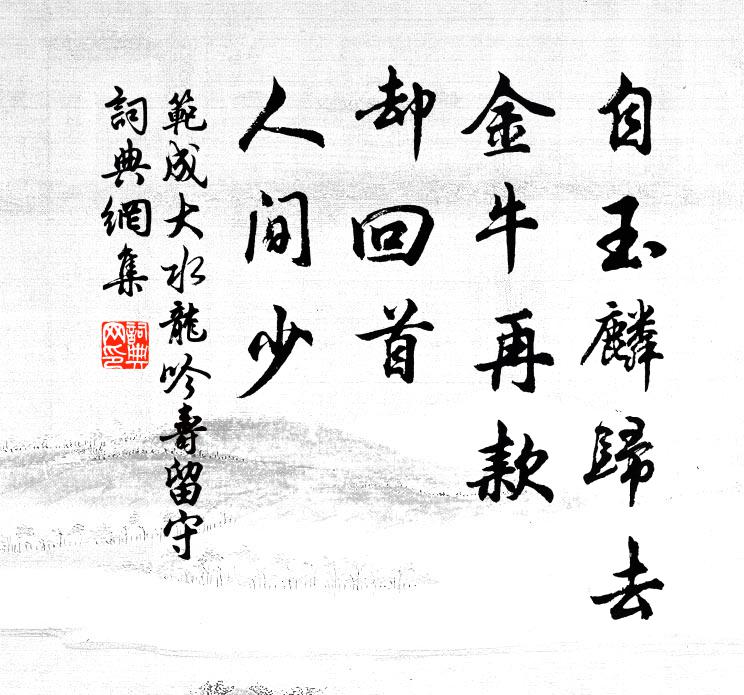 自玉麟歸去
金牛再款
却回首
人間少
範成大水龍吟壽留守
詞典網集
詞典網印